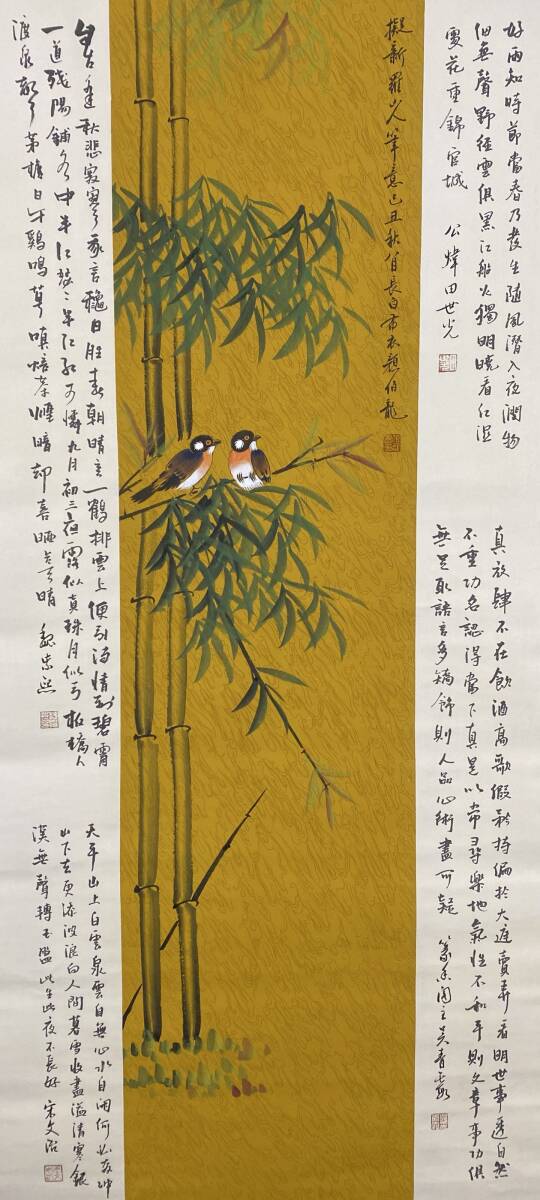 擬新羅山人筆意己丑秋八月長白布衣顏伯龍
好雨知時節當春乃發生隨風潛入夜潤物
細無聲野徑雲俱黑江船火獨明曉看紅濕
處花重錦官城 公煒田世光
真放肆不在飲酒高歌假矜持偏於大庭賣弄看明世事透自然
不重功名認得當下真是以常尋樂地氣性不和平則文章事功俱
無足取語言多矯飾則人品心術盡可疑 篆香閣主吳青霞
自古逢秋悲寂寥我言秋日勝春朝晴空一鶴排雲上便引詩情到碧霄
一道殘陽鋪水中半江瑟瑟半江紅可憐九月初三夜露似真珠月似弓板橋人
渡泉聲茅檐日午雞鳴莫嗔焙茶煙暗却喜曬穀天晴 魏忠熙
天平山上白雲泉雲自無心水自閒何必奔沖
山下去更添波浪向人間暮雲收盡溢清寒銀
漢無聲轉玉盤此生此夜不長好 宋文治